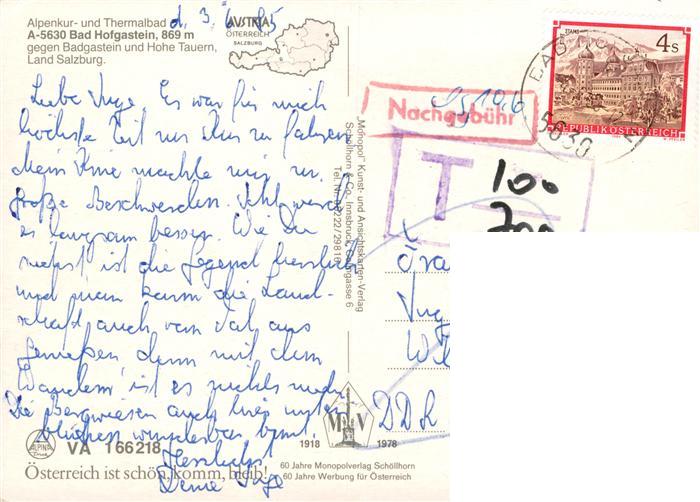 Alpenkur- und Thermalbad
A-5630 Bad Hofgastein, 869 m
gegen Badgastein und Hohe Tauern,
Land Salzburg.
d. 3.6.85
AUSTRIA
ÖSTERREICH
SALZBURG
Liebe Inge. Es war für mich
höchste Zeit zur Kur zu fahren
Mein Knie machte mir zu
große Beschwerden. Jetzt wird
es langsam besser. Wie Du
siehst ist die Gegend herrlich
und man kann die Land-
schaft auch vom Tal aus
genießen, denn mit dem
Wandern ist es nichts mehr
Die Bergwiesen auch hier unten
blühen wunderbar bunt.
Herzlichst
Deine Inge
ALPINA
VA 166218
Österreich ist schön, komm, bleib!
"Monopol" Kunst- und Ansichtskarten-Verlag
Schöllhorn & Co., Innsbruck, Gasse 6
Tel. Nr. 05222/29818
1918 MV 1978
60 Jahre Monopolverlag Schöllhorn
60 Jahre Werbung für Österreich
Nachgebühr
10.6.
T
100
700
STAMS
4 S
REPUBLIK ÖSTERREICH
BAD
5630
Frau
Inge
DDR